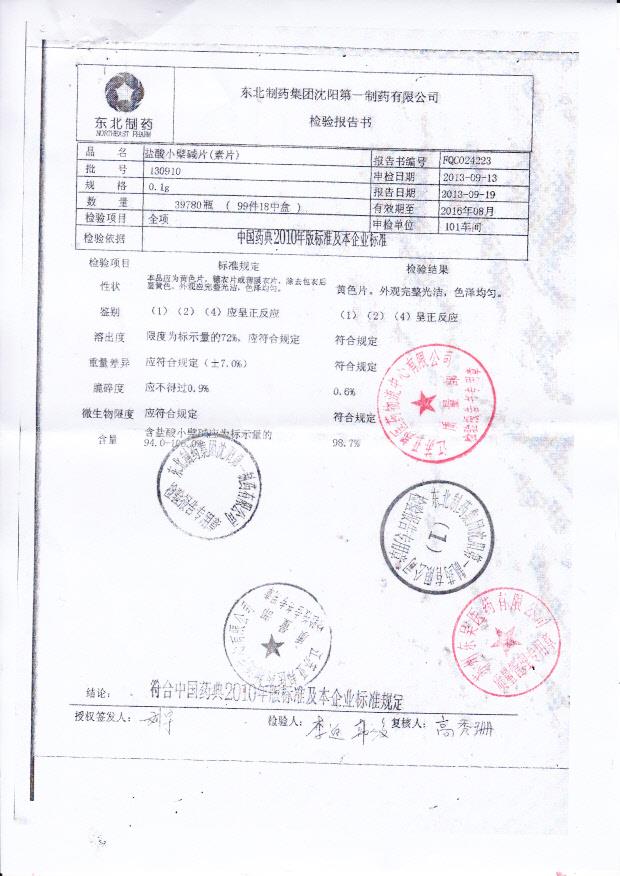 东北制药
NORTHEAST PHARM
东北制药集团沈阳第一制药有限公司
检验报告书
品 名 盐酸小檗碱片(素片) 报告书编号 FQC024223
批 号 130910 申检日期 2013-09-13
规 格 0.1g 报告日期 2013-09-19
数 量 39780瓶 ( 99件18中盒 ) 有效期至 2016年08月
检验项目 全项 申检单位 101车间
检验依据 中国药典2010年版标准及本企业标准
检验项目 标准规定 检验结果
性状 本品应为黄色片,糖衣片或薄膜衣片,除去包衣后
显黄色。外观应完整光洁,色泽均匀。 黄色片。外观完整光洁,色泽均匀。
鉴别 (1)(2)(4)应呈正反应 (1)(2)(4)呈正反应
溶出度 限度为标示量的72%,应符合规定 符合规定
重量差异 应符合规定(±7.0%) 符合规定
脆碎度 应不得过0.9% 0.6%
微生物限度 应符合规定 符合规定
含量 含盐酸小檗碱应为标示量的
94.0-106.0% 98.7%
东北制药集团沈阳第一制药有限公司
检验报告专用章
(1)
质量部
结论: 符合中国药典2010年版标准及本企业标准规定
授权签发人: 检验人: 复核人: 高秀珊